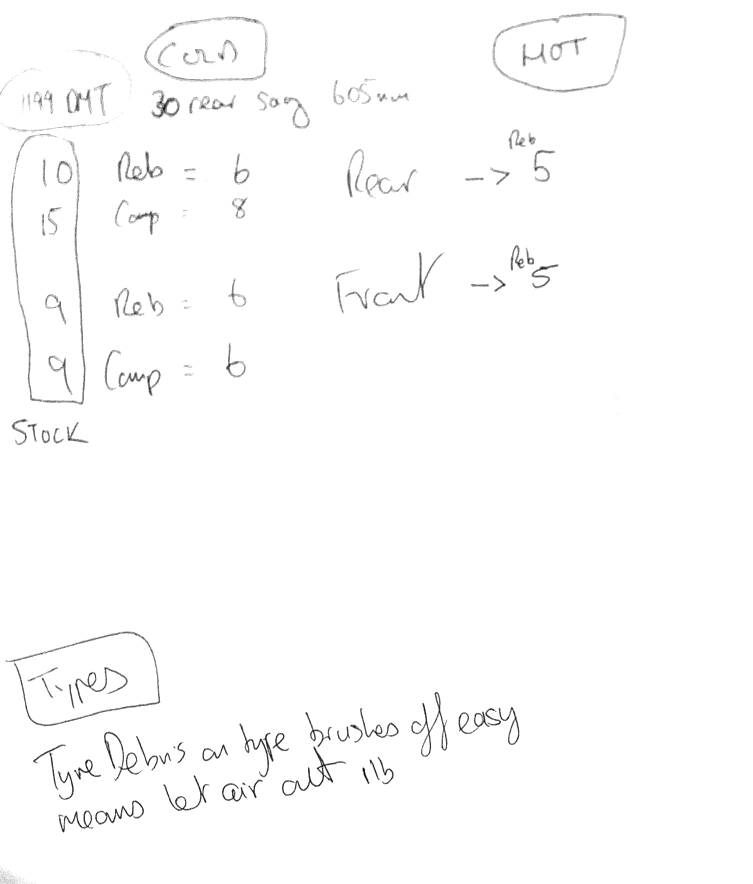 COLD
HOT
1199 OMT 30 rear sag 605mm
10 Reb = 6 Rear -> Reb 5
15 Comp = 8
9 Reb = 6 Front -> Reb 5
9 Comp = 6
STOCK
Tyres
Tyre Debris on tyre brushes off easy
means let air out 1lb